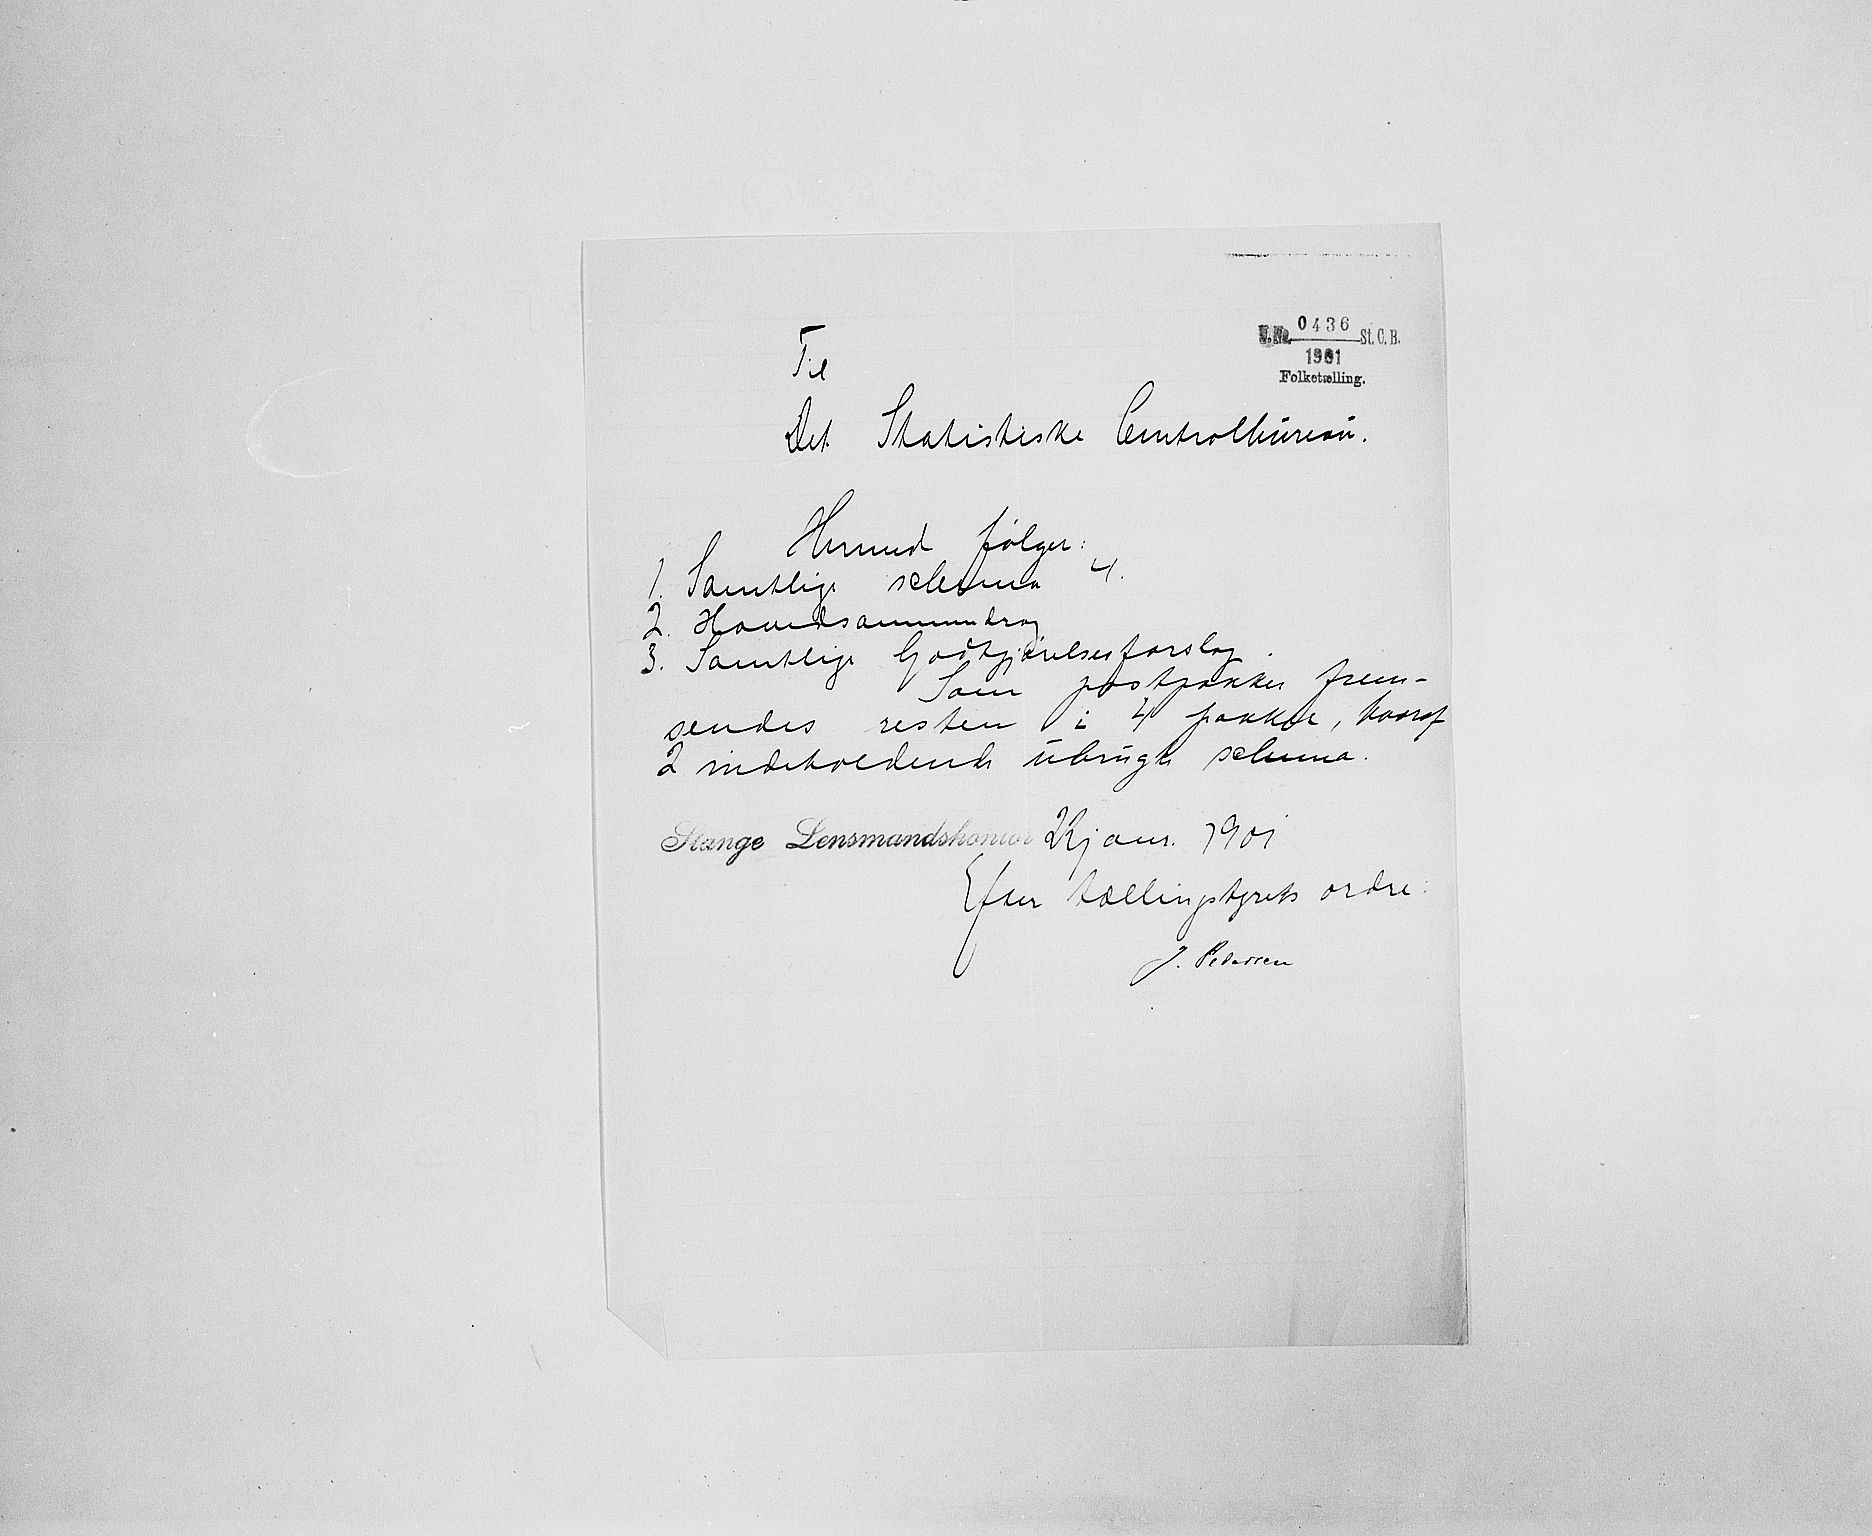 J.No. 0436 St. C. B.
1901
Folketælling.
Til
Det Statistiske Centralbureau.
Hermed følger:
1. Samtlige schema 4.
2. Hovedsammendrag
3. Samtlige Godtgjørelsesforslag.
Som postpakker frem-
sendes resten i 4 pakker, hvoraf
2 indeholdende ubrugte schema.
Stange Lensmandskontor janr. 1901
Efter tællingstyrets ordre:
J. Pedersen